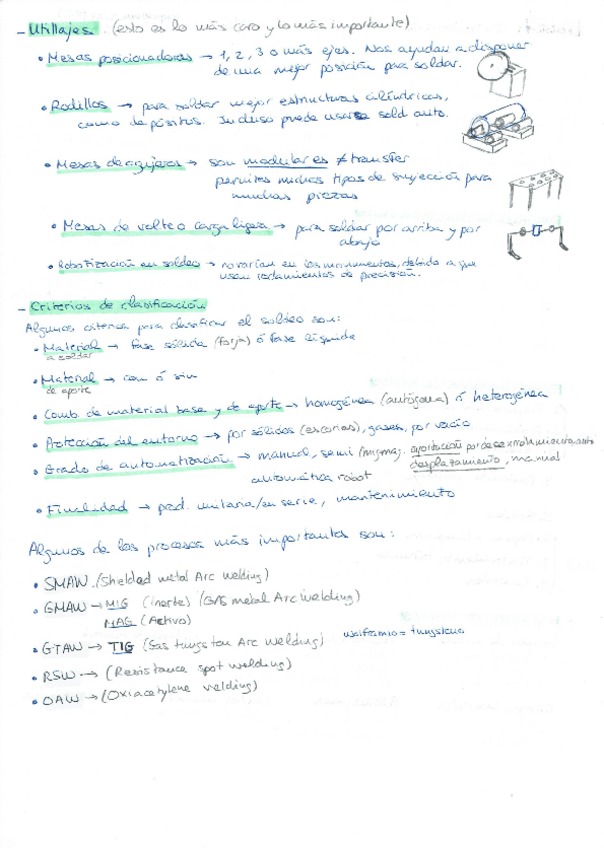 - Utillajes (esto es lo más caro y lo más importante)
• Mesas posicionadoras → 1, 2, 3 o más ejes. Nos ayudan a disponer
de una mejor posición para soldar.
• Rodillos → para soldar mejor estructuras cilíndricas,
como depósitos. Incluso puede usarse sold auto.
• Mesas de agujeros → son modulares ≠ transfer
permiten muchos tipos de sujección para
muchas piezas
• Mesas de volteo carga ligera → para soldar por arriba y por
abajo
• Robotización en soldeo → no varían en los movimientos, debido a que
usan rodamientos de precisión.
- Criterios de clasificación
Algunos criterios para clasificar el soldeo son:
• Material → fase sólida (forja) ó fase líquida
a soldar
• Material → con ó sin
de aporte
• Comb. de material base y de aporte → homogénea (autógena) ó heterogénea
• Protección del entorno → por sólidos (escorias), gases, por vacío
• Grado de automatización → manual, semi (mig/mag). aportación por desenrollamiento auto
desplazamiento, manual
automática robot
• Finalidad → pcd. unitaria/en serie, mantenimiento
Algunos de los procesos más importantes son:
• SMAW. (Shelded metal Arc welding)
• GMAW → MIG (inerte) (GAS metal Arc welding)
MAG (Activo)
• GTAW → TIG (Gas tungstan Arc welding) wolframio = tungsteno
• RSW → (Resistance spot welding)
• OAW → (Oxiacetylene welding)